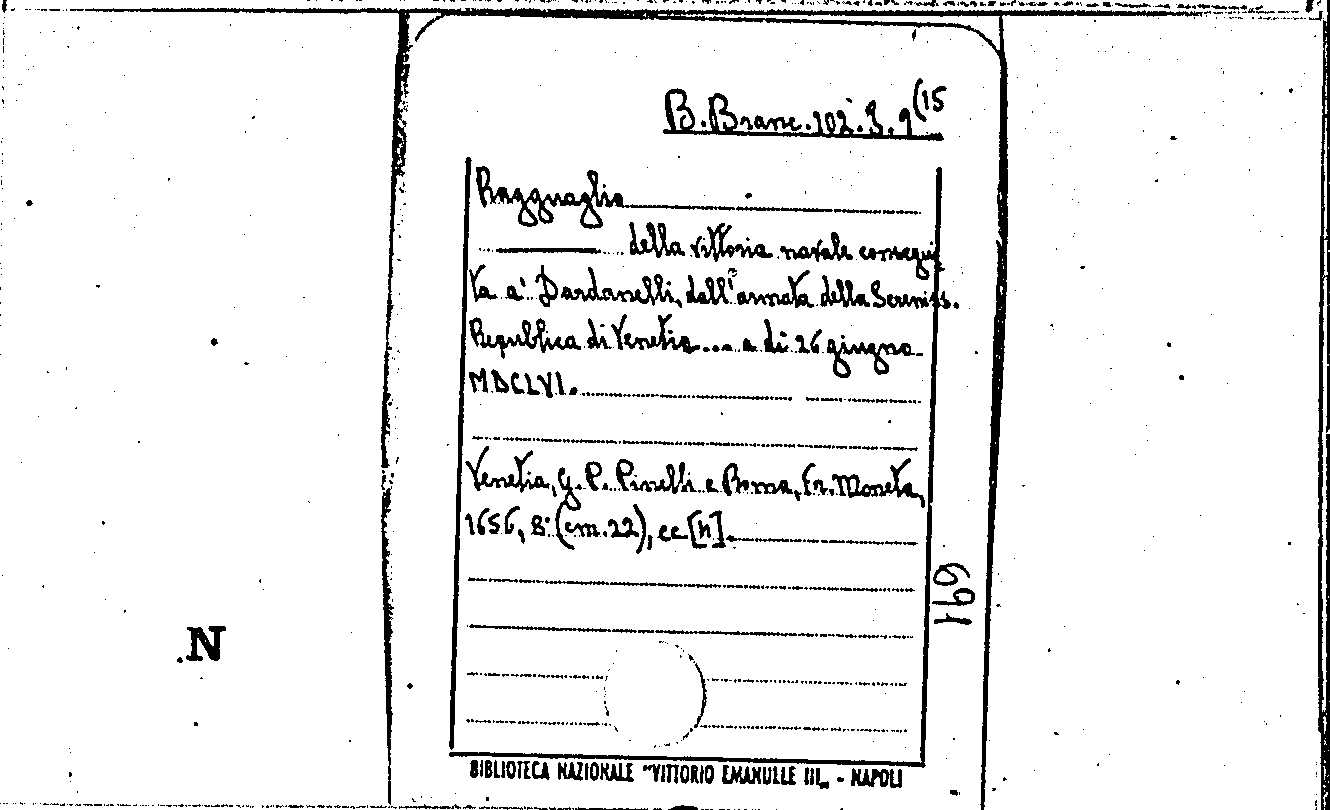 B. Branc. 102. J. 9 (15
Ragguaglio
della vittoria navale consegui
ta a' Dardanelli, dall'armata della Sereniss.
Republica di Venetia ... a di 26 giugno
MDCLVI.
Venetia, G. P. Pinelli e Roma, Fr. Moneta,
1656, 8° (cm. 22), cc [4].
691
N
BIBLIOTECA NAZIONALE "VITTORIO EMANUELE III„ - NAPOLI